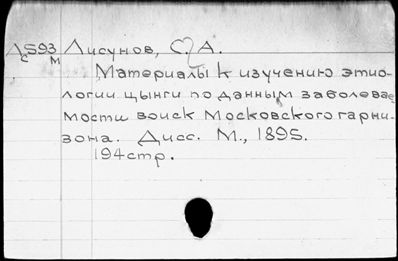 Лс593м Лисунов, С. А.
Материалы к изучению этио-
логии цынги по данным заболевае
мости войск Московского гарни-
зона. Дисс. М., 1895.
194 стр.